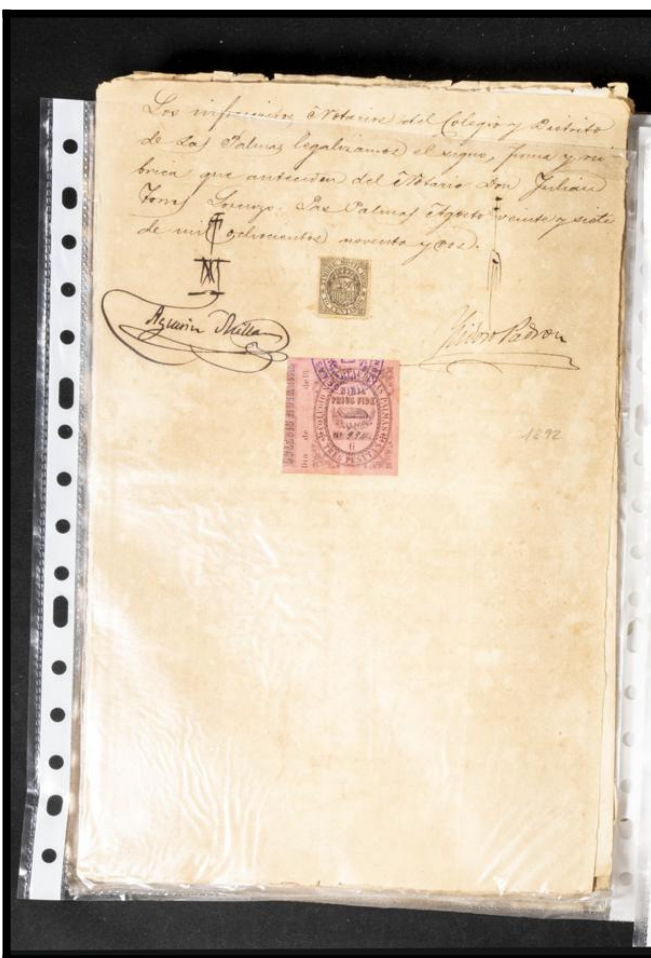 Los infrascritos Notarios del Colegio y Distrito
de Las Palmas legalizamos el signo, firma y rú-
brica que anteceden del Notario Don Julian
Torres Lorenzo. Las Palmas Agosto veinte y siete
de mil ochocientos noventa y dos.
Agustin Millares
Isidoro Padron
NIHIL
PRIUS FIDE
TRES PESETAS
1892